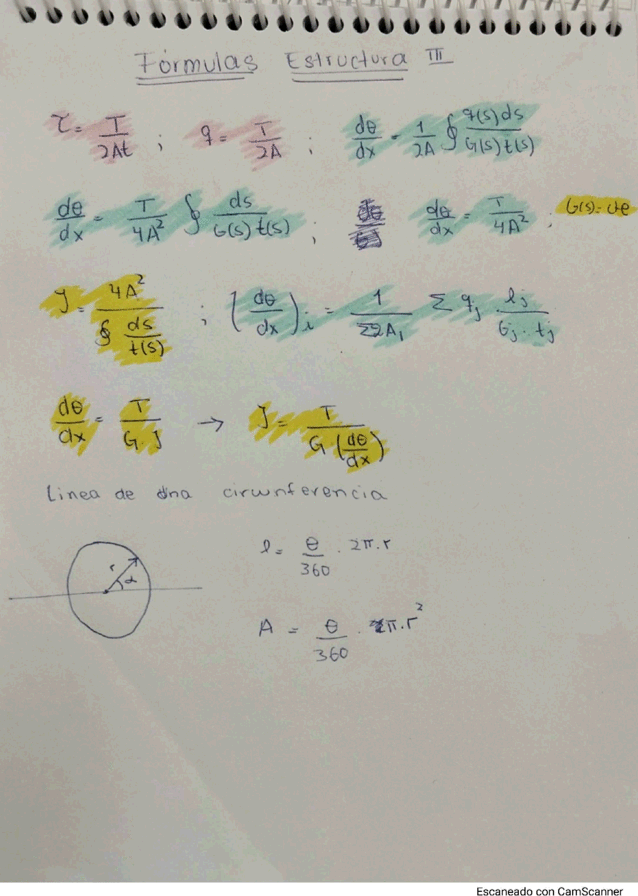 Fórmulas Estructura III
τ = T/2At ; q = T/2A ; dθ/dx = 1/2A ∮ q(s)ds/G(s)t(s)
dθ/dx = T/4A² ∮ ds/G(s)t(s) ; dθ/dx = T/4A² ; G(s)=cte
J = 4A²/∮ ds/t(s) ; (dθ/dx)i = 1/Σ2A₁ Σ qj lj/Gj·tj
dθ/dx = T/G.J → J = T/G(dθ/dx)
Linea de una circunferencia
r α
l = θ/360 · 2π.r
A = θ/360 · π.r²
Escaneado con CamScanner